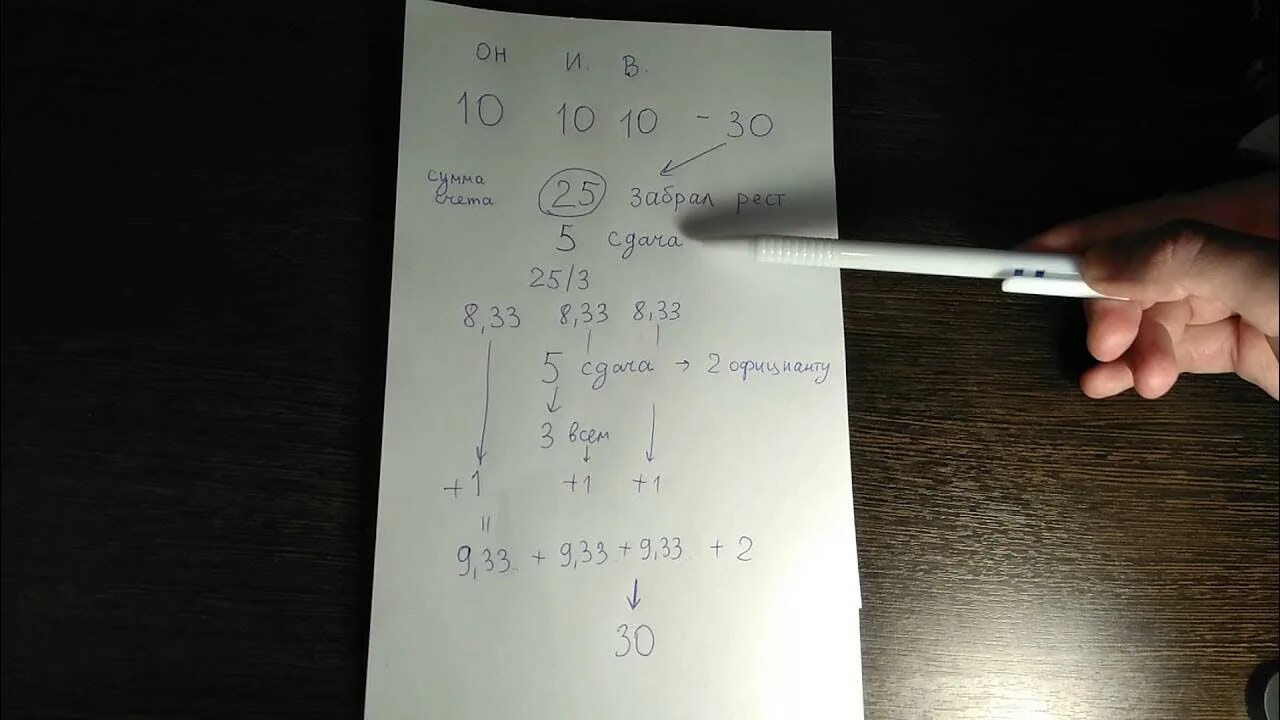 ОН И. В.
10 10 10 - 30
сумма
счета 25 забрал рест
5 сдача
25/3
8,33 8,33 8,33
5 сдача → 2 официанту
3 всем
+1 +1 +1
=
9,33.. + 9,33 + 9,33.. + 2
30